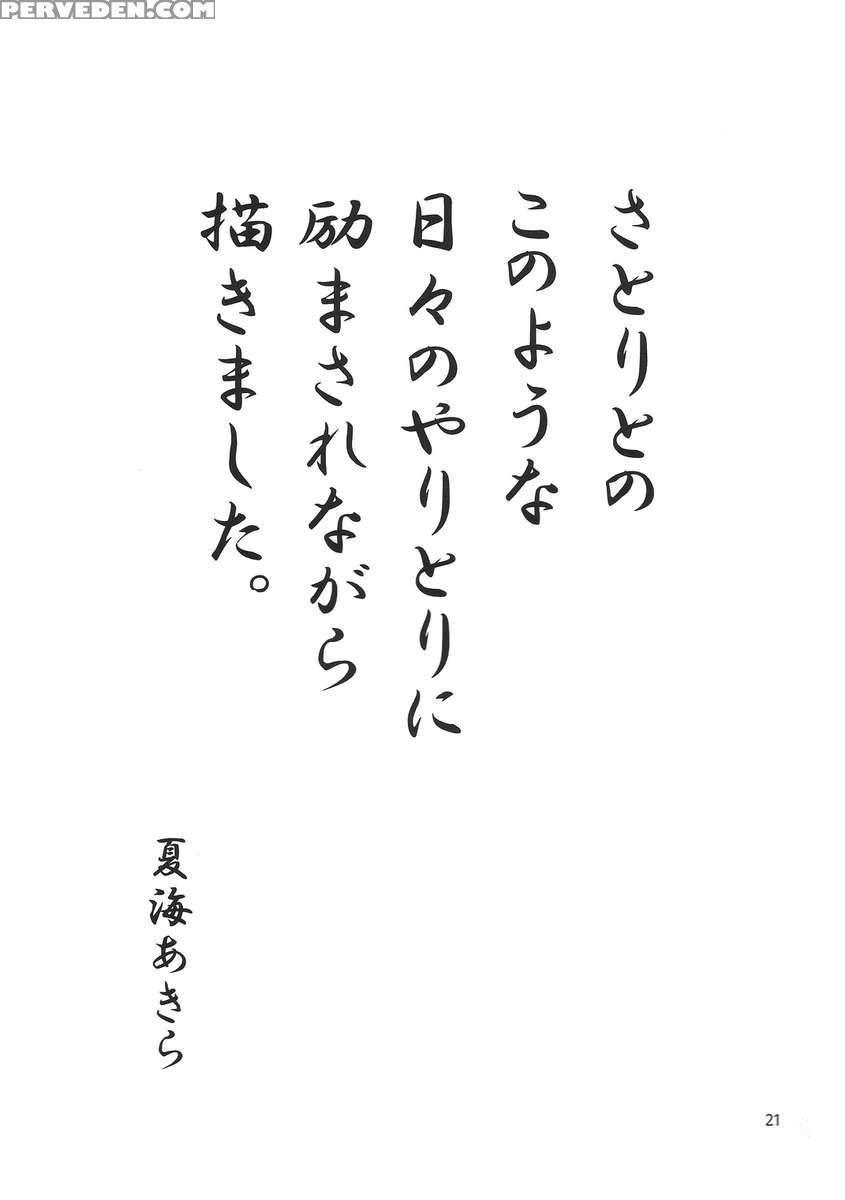 PERVEDEN.COM
さとりとの
このような
日々のやりとりに
励まされながら
描きました。
夏海あきら
21